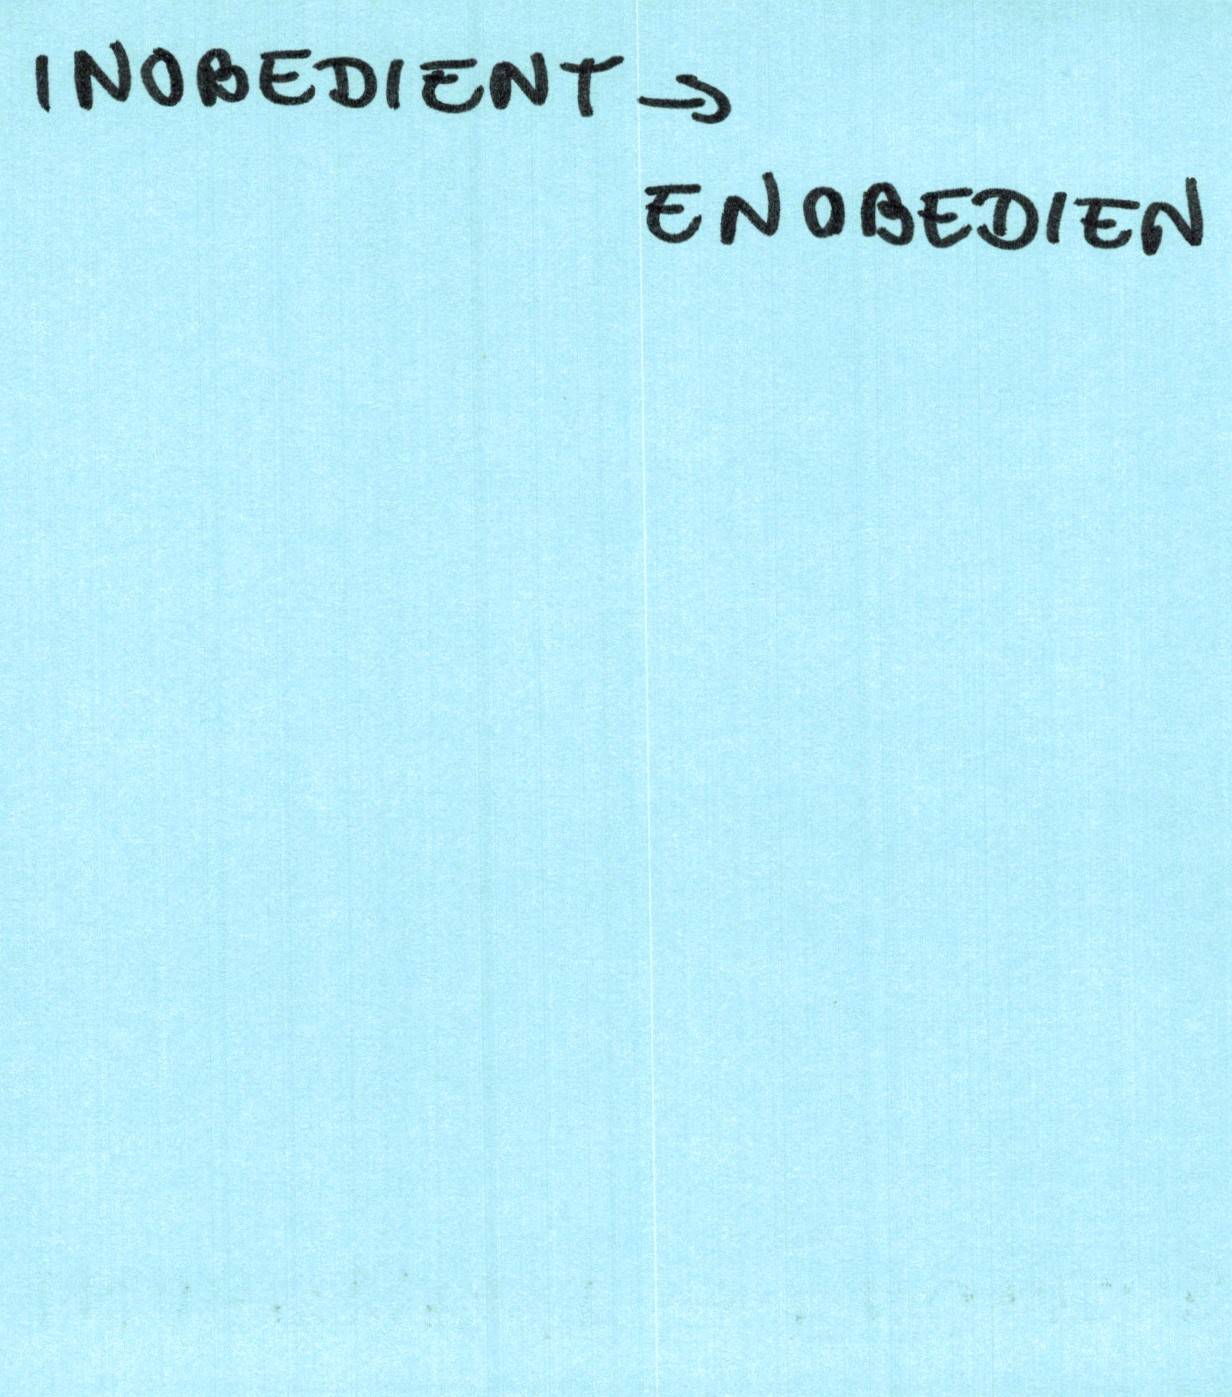 INOBEDIENT →
ENOBEDIEN